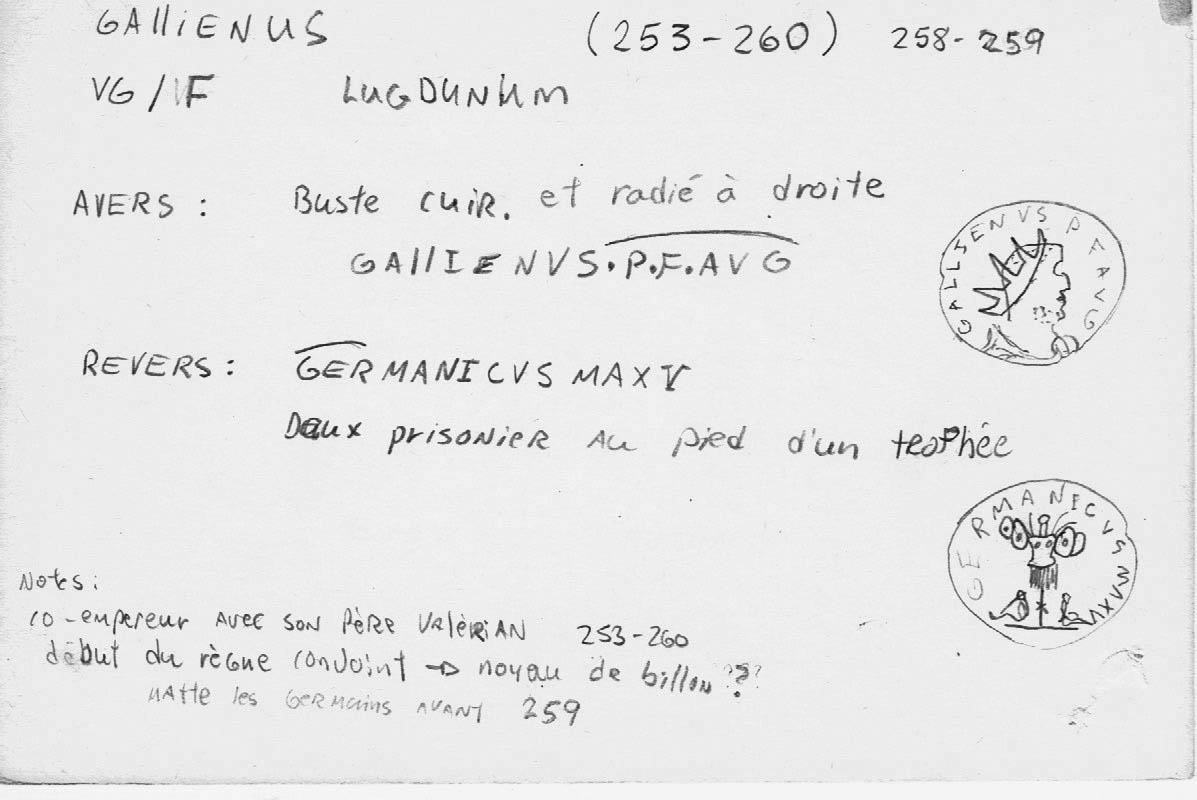 GALLIENUS (253-260) 258-259
VG/VF LUGDUNUM
AVERS : Buste cuir. et radié à droite
GALLIENVS.P.F.AVG
GALLIENVS P F AVG
REVERS : GERMANICVS MAX V
Deux prisonier au pied d'un trophée
GERMANICVS MAXV
Notes :
co-empereur avec son père Valèrian 253-260
début du règne conjoint → noyau de billon ???
matte les Germains avant 259